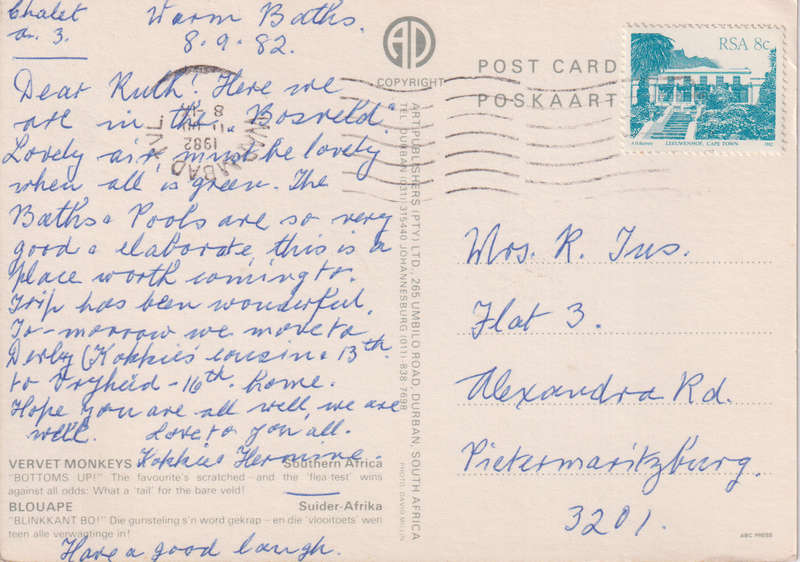 Chalet Warm Baths.
no. 3. 8.9.82.
Dear Ruth! Here we
are in the „Bosveld."
Lovely air, must be lovely
when all is green. The
Baths & Pools are so very
good & elaborate, this is a
place worth coming to.
Trip has been wonderful.
To-morrow we move to
Derby (Koppies cousin & 13th.
to Vryheid - 16th. home.
Hope you are all well, we are
well. Love to you all.
Hermine.
VERVET MONKEYS Southern Africa
"BOTTOMS UP!" The favourite's scratched—and the 'flea-test' wins
against all odds: What a 'tail' for the bare veld!
BLOUAPE Suider-Afrika
"BLINKKANT BO!" Die gunsteling s'n word gekrap – en die 'vlooitoets' wen
teen alle verwagtinge in!
Have a good laugh.
AD
COPYRIGHT
ART PUBLISHERS (PTY) LTD., 265 UMBILO ROAD, DURBAN, SOUTH AFRICA
TEL. DURBAN (031) 315440 JOHANNESBURG (011) 838 7698
PHOTO: DAVID
POST CARD
POSKAART
RSA 8c
LEEUWENHOF, CAPE TOWN
1982
WARMBAD TVL
1982
Mrs. R. Ins.
Flat 3.
Alexandra Rd.
Pietermaritzburg.
3201.
ABC PRESS